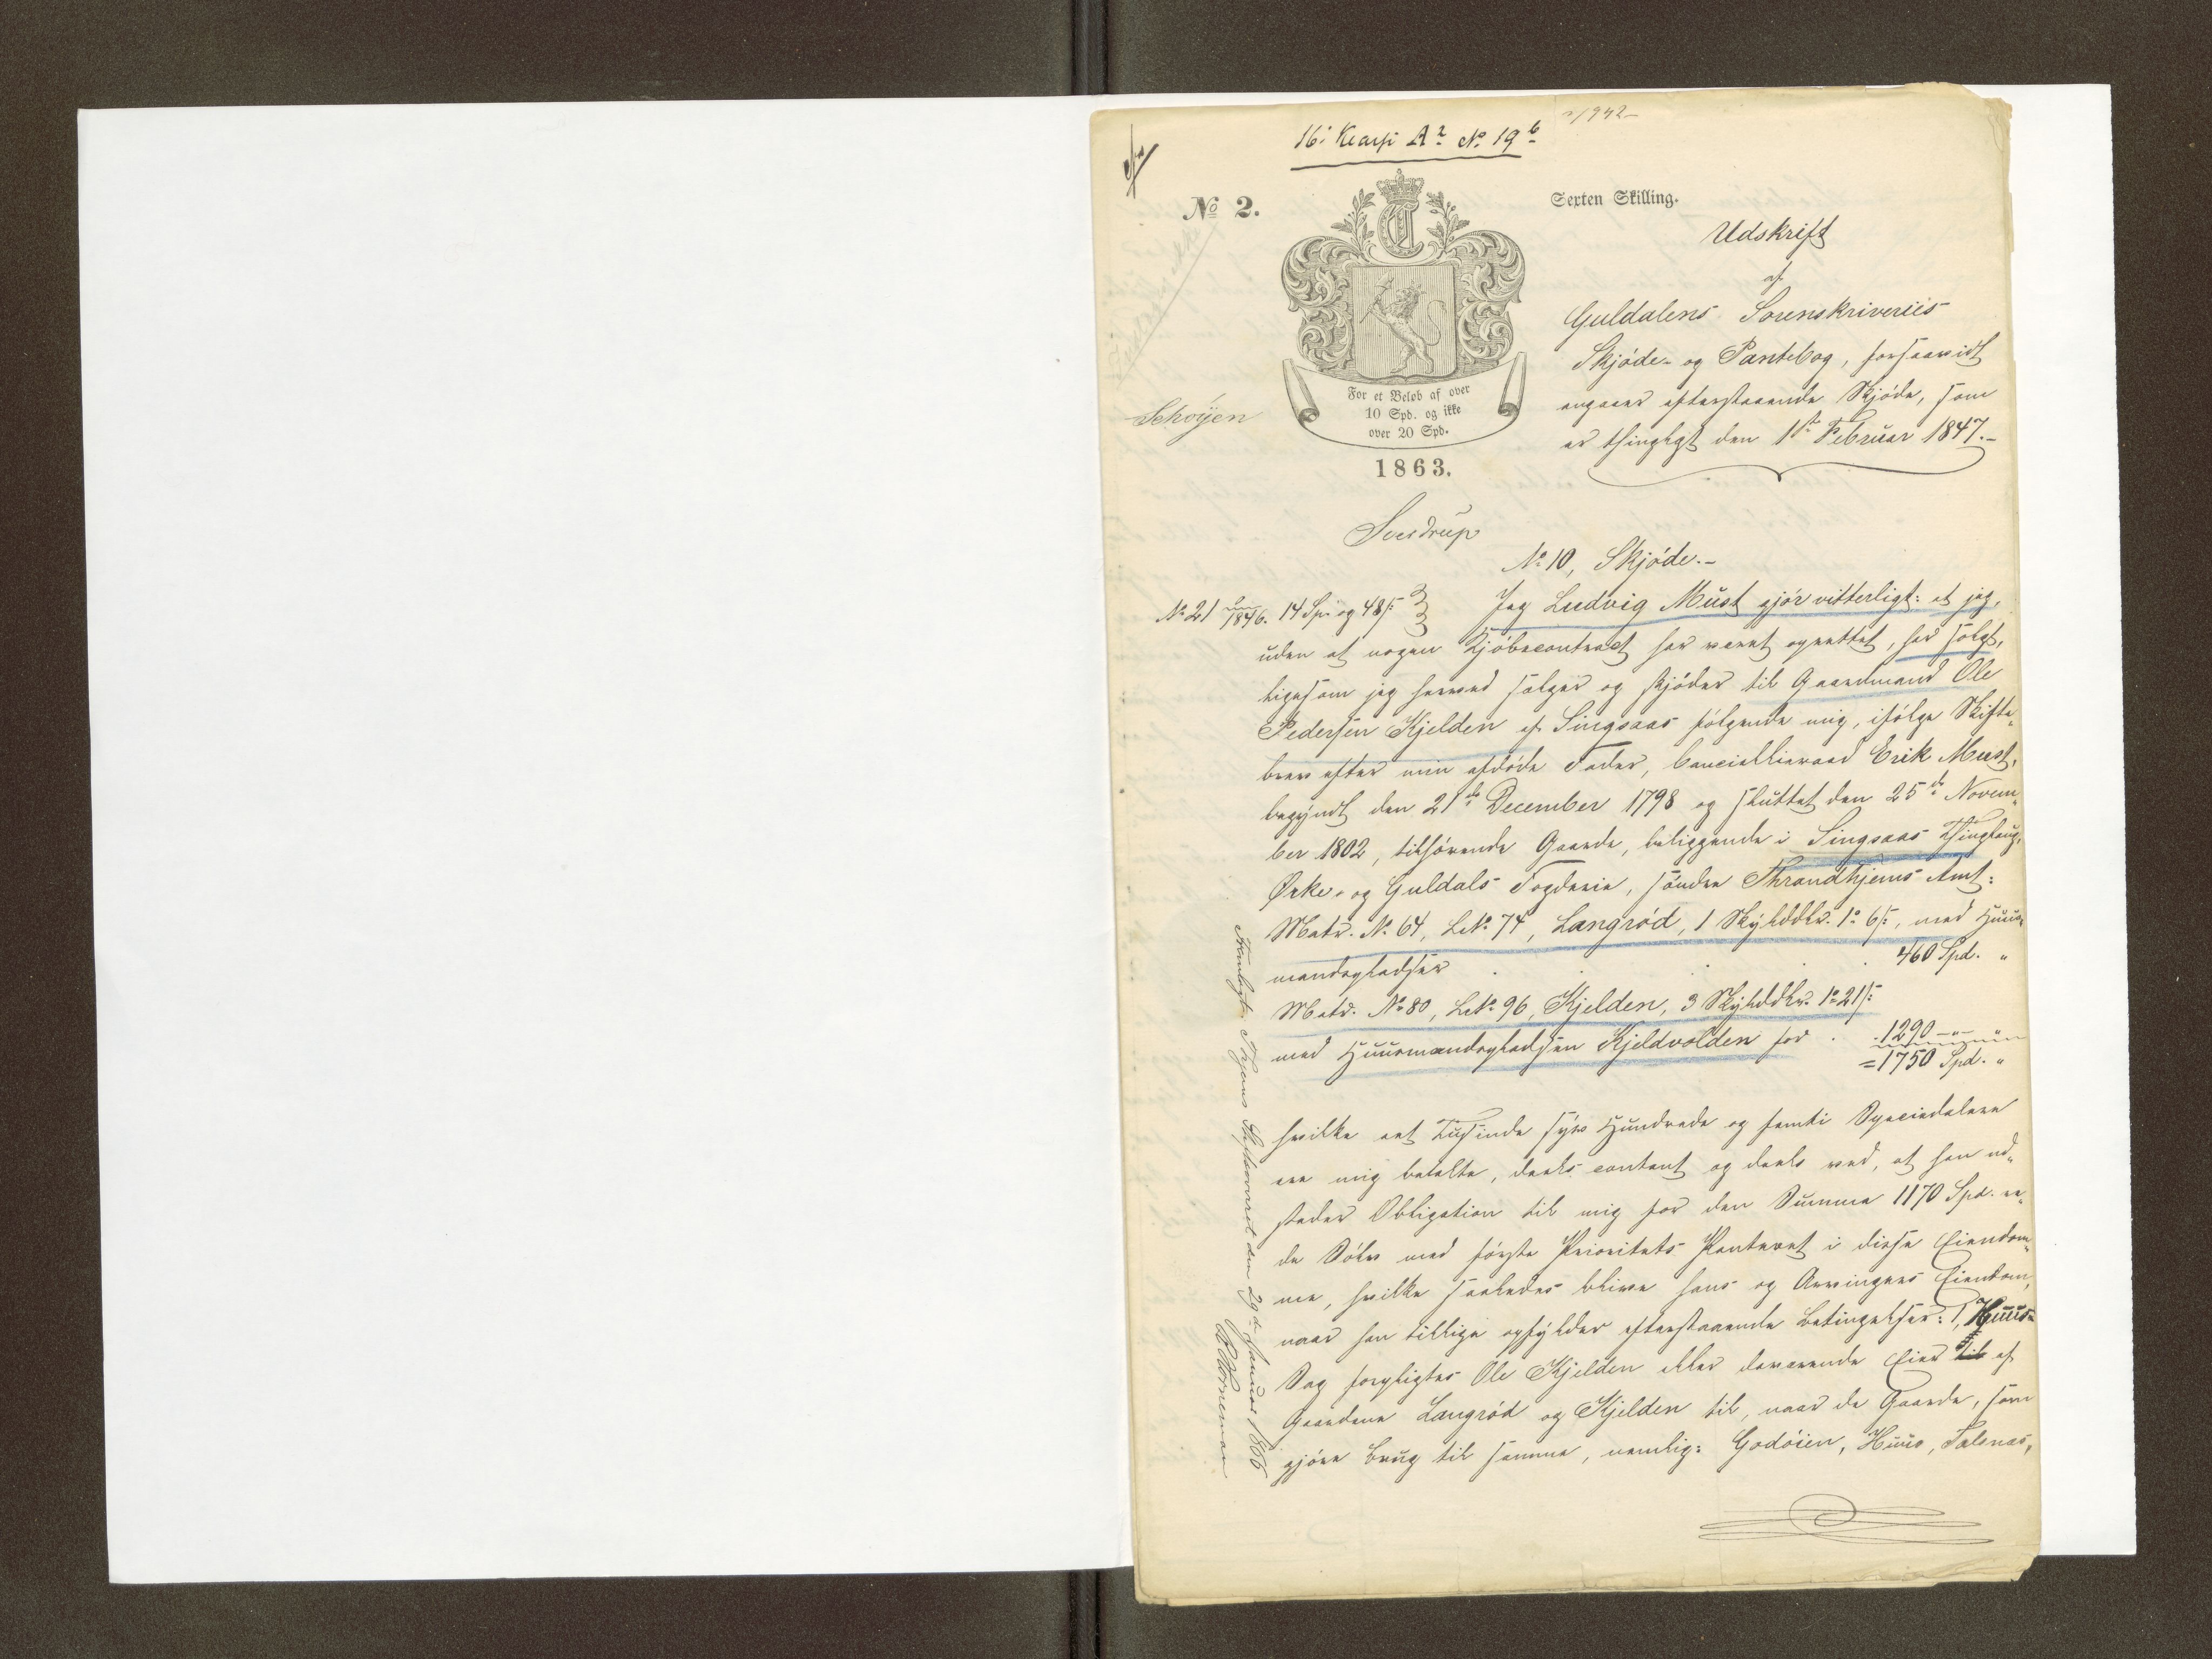 16: No 19 b
No 2.
Sexten Skilling.
Udskrift
af
Guldalens Sorenskriveries
Skjöde- og Pantebog, forsaavidt
angaaer efterstaaende Skjöde, som
er thinglyst den 1ste Februar 1847.-
For et Beløb af over
10 Spd. og ikke
over 20 Spd.
1863.
Schøyen
Sverdrup
No 10, Skjöde.-
No 21 1846. 14 Sp. og 48 s:
Jeg Ludvig Must gjör vitterligt: at jeg,
uden at nogen Kjöbecontract har været oprettet, har solgt,
ligesom jeg herved sælger og skjöder til Gaardmand Ole
Pedersen Kjelden af Singsaas fölgende mig, ifölge Skifte„
brev efter min afdöde Fader, Cancelliraad Erik Must,
begyndt den 21de December 1798 og sluttet den 25de Novem„
ber 1802, tilhörende Gaarde, beliggende i Singsaas Thinglaug,
Ørke- og Guldals Fogderie, söndre Throndhjems Amt:
Matr. No 64, LNo 74, Langröd, 1 Skylddlr. 1 o 6 s:, med Huus„
mandspladser . . . . 460 Spd. "
Matr. No 80, LNo 96, Kjelden, 3 Skylddlr. 1 o 21 s:
med Huusmandspladsen Kjeldvolden for . . 1290 -"- "
= 1750 Spd. "
hvilke eet Tusinde syv Hundrede og femti Speciedalere
ere mig betalte, deels contant og deels ved, at han ud„
steder Obligation til mig for den Summa 1170 Spd. re„
de Sölv med förste Prioritets Panteret i disse Eiendom„
me, hvilke saaledes blive hans og Arvingers Eiendom,
naar han tillige opfylder efterstaaende Betingelser: 1, Huus„
Dag forpligtes Ole Kjelden eller daværende Eier til af
Gaardene Langröd og Kjelden til, naar de Gaarde, som
gjöre Brug til samme, nemlig: Godöien, Huus, Talsnæs,
Fremlagt i Thjems Stiftsoverret den 29de Januar 1866
Hornemann